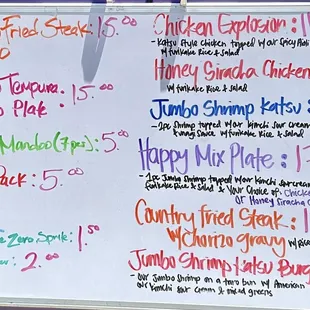 Fried Steak: 15.00
Tempura
Plate: 15.00
Mandoo (7pcs): 5.00
Pack: 5.00
Zero Sprite: 1.50
2.00
Chicken Explosion:
- Katsu Style Chicken topped w/our Spicy
w/furikake Rice & Salad
Honey Siracha Chicken
w/furikake Rice & Salad
Jumbo Shrimp Katsu:
- 1pc Shrimp topped w/our kimchi sour cream
sauce w/furikake Rice & Salad
Happy Mix Plate:
- 1pc Jumbo Shrimp topped w/our kimchi sour cream
furikake Rice & Salad & Your Choice of: Chicken
or Honey Siracha
Country fried Steak:
w/Chorizo gravy w/Rice
Jumbo Shrimp Katsu Burg
- Our Jumbo Shrimp on a taro bun w/American
our kimchi sour cream & mixed greens